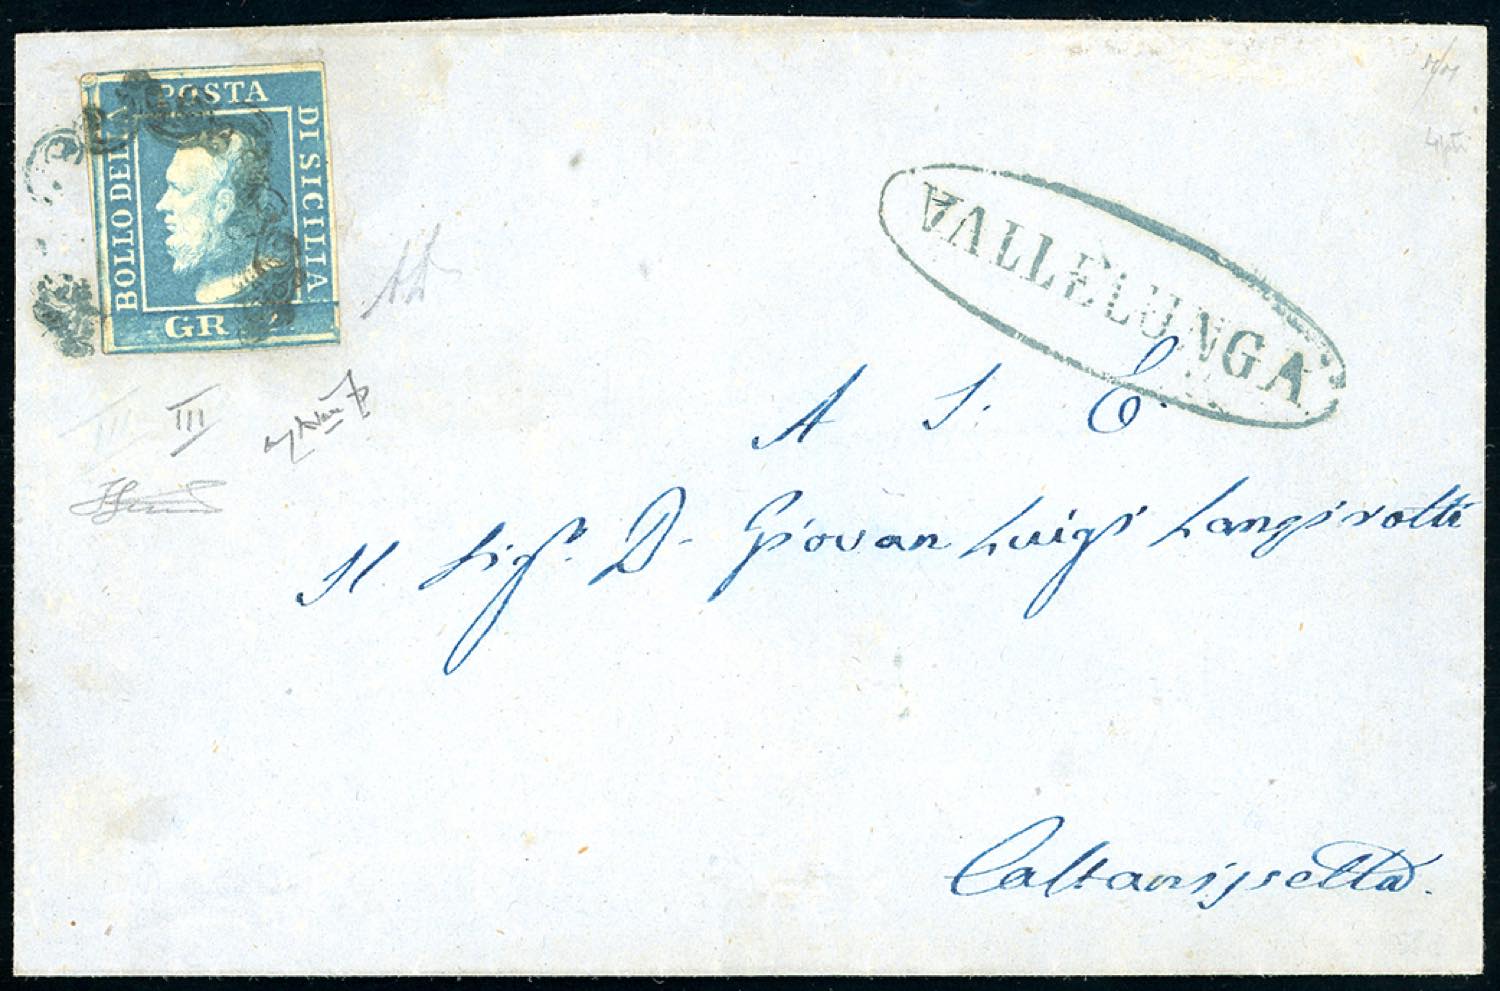 POSTA
BOLLO DELLA
DI SICILIA
GR
VALLELUNGA
III
A S. E.
Il Sigr. D. Giovan Luigi Langirotti
Caltanissetta.